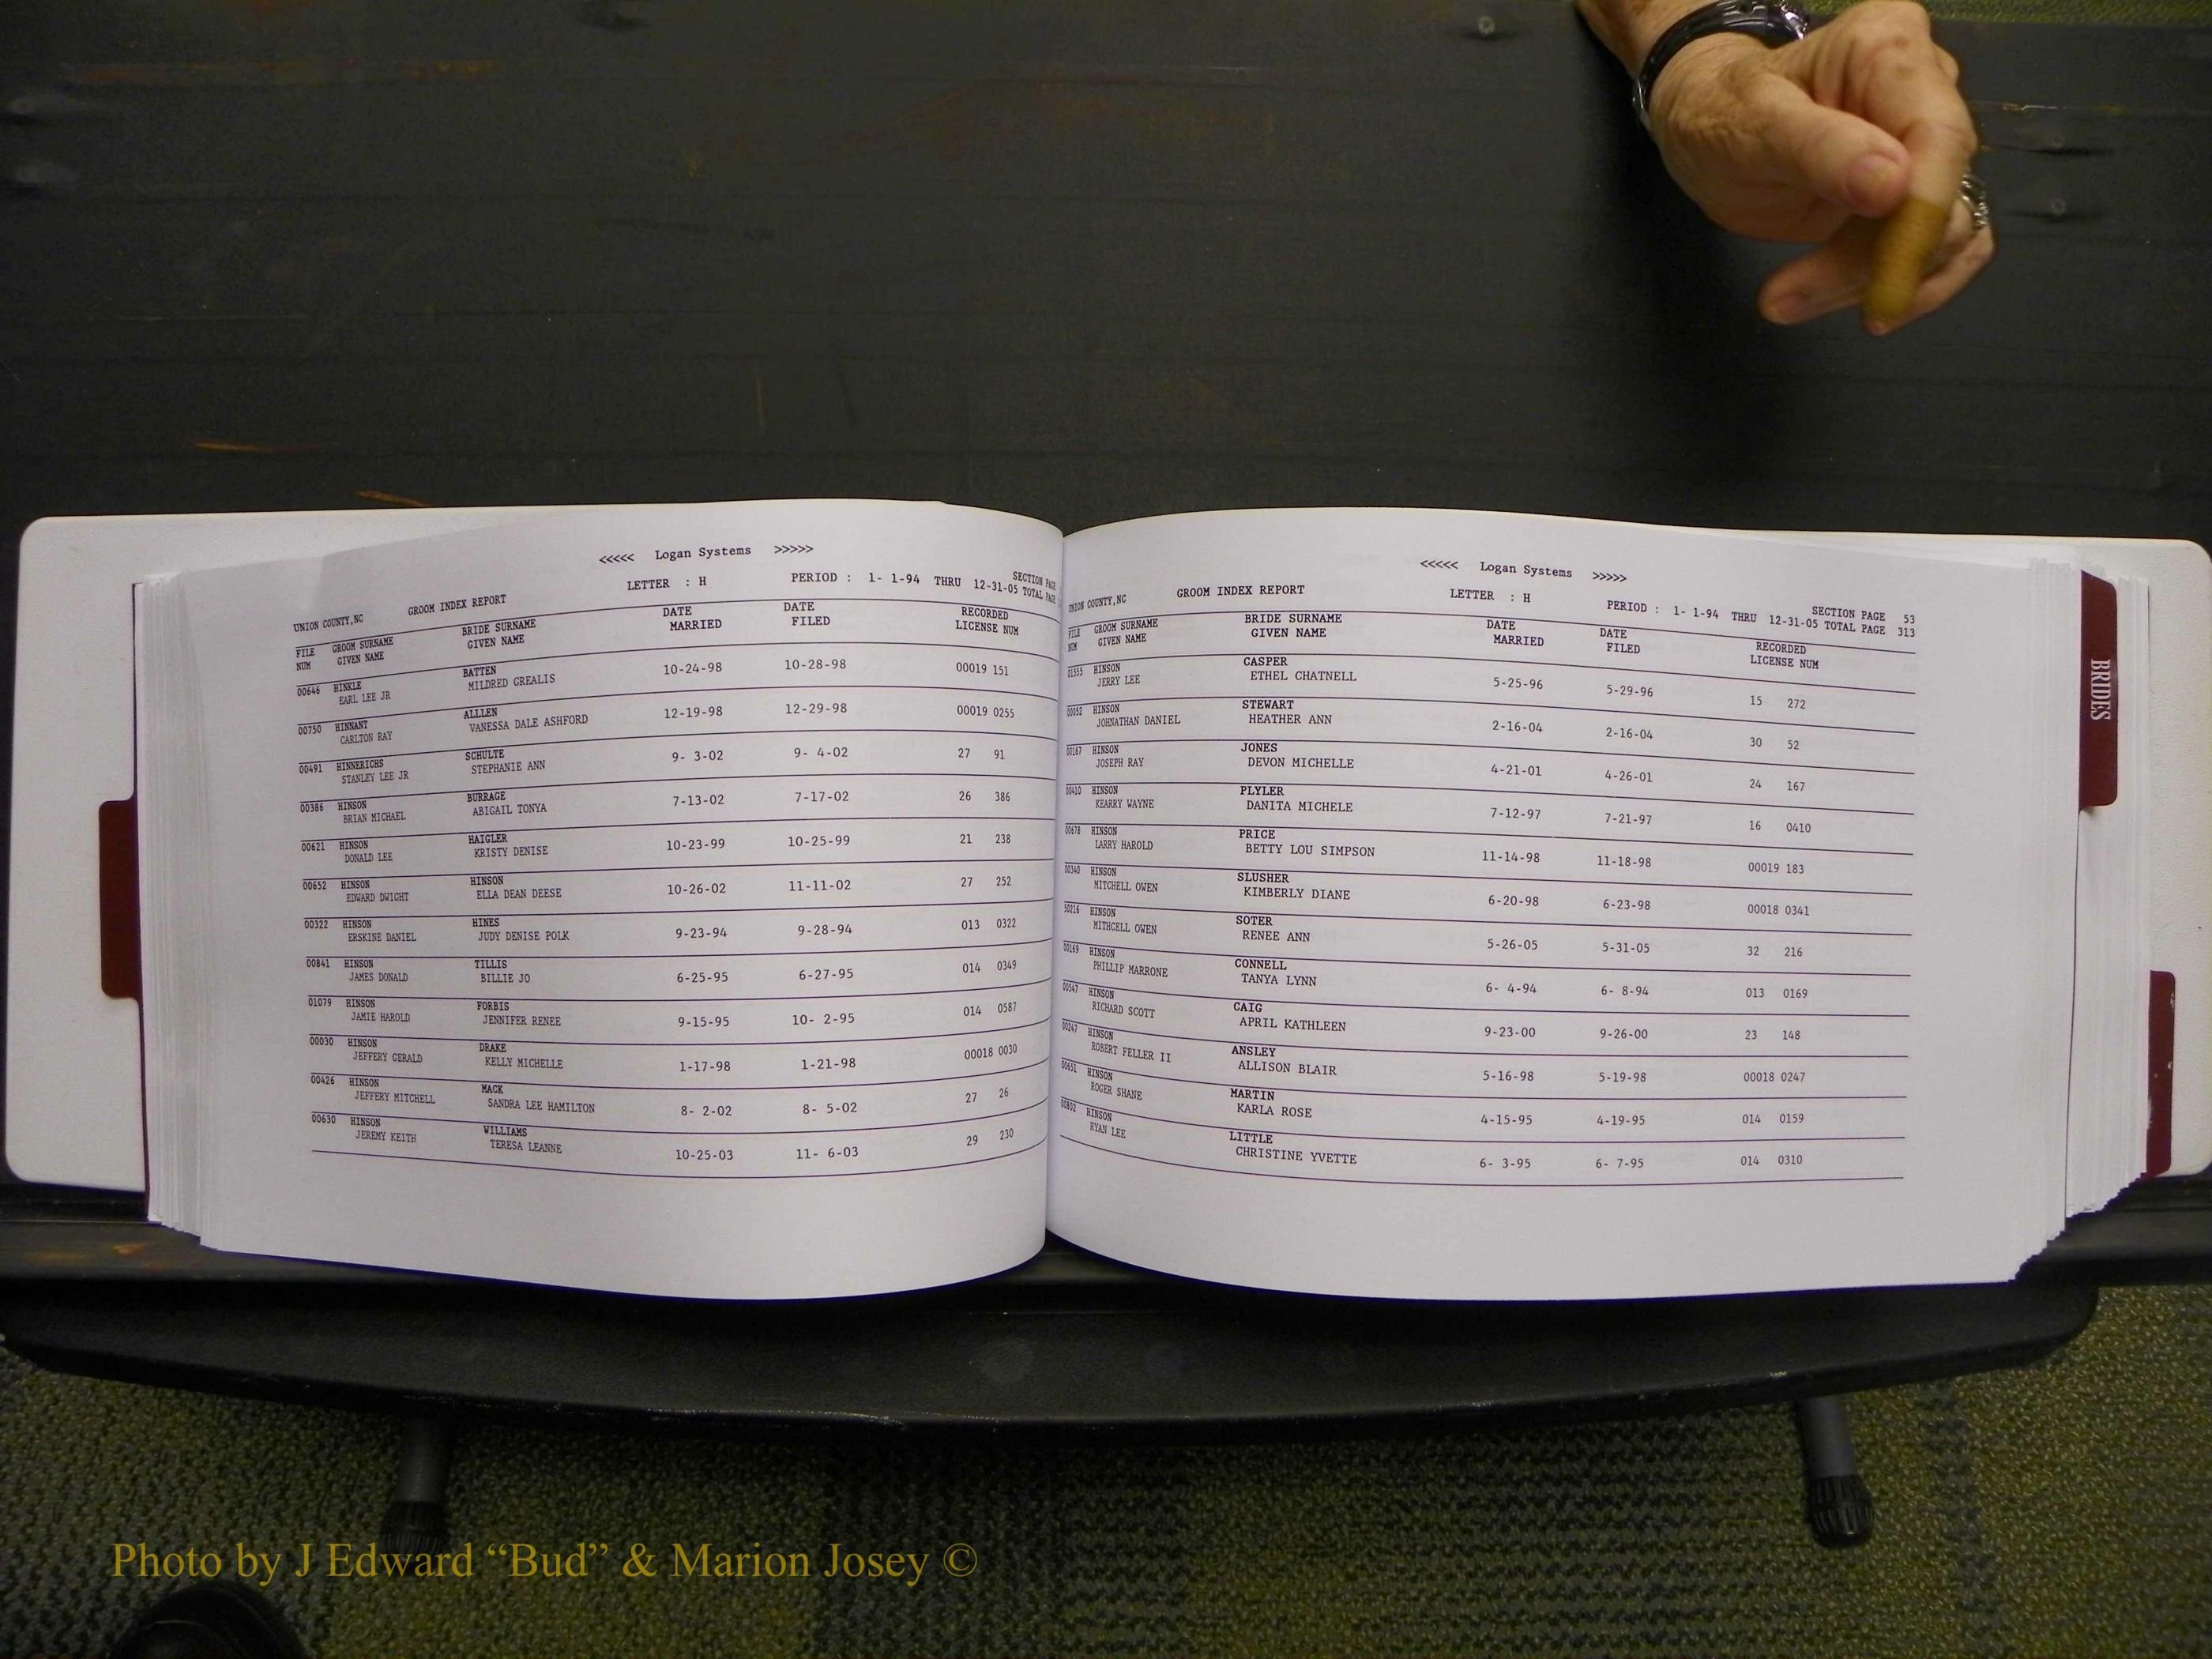 <<<<< Logan Systems >>>>>
LETTER : H PERIOD : 1- 1-94 THRU 12-31-05 SECTION PAGE
TOTAL PAGE
UNION COUNTY,NC GROOM INDEX REPORT
FILE GROOM SURNAME BRIDE SURNAME DATE DATE RECORDED
NUM GIVEN NAME GIVEN NAME MARRIED FILED LICENSE NUM
00646 HINKLE BATTEN 10-24-98 10-28-98 00019 151
EARL LEE JR MILDRED GREALIS
00750 HINNANT ALLLEN 12-19-98 12-29-98 00019 0255
CARLTON RAY VANESSA DALE ASHFORD
00491 HINNERICHS SCHULTE 9- 3-02 9- 4-02 27 91
STANLEY LEE JR STEPHANIE ANN
00386 HINSON BURRAGE 7-13-02 7-17-02 26 386
BRIAN MICHAEL ABIGAIL TONYA
00621 HINSON HAIGLER 10-23-99 10-25-99 21 238
DONALD LEE KRISTY DENISE
00652 HINSON HINSON 10-26-02 11-11-02 27 252
EDWARD DWIGHT ELLA DEAN DEESE
00322 HINSON HINES 9-23-94 9-28-94 013 0322
ERSKINE DANIEL JUDY DENISE POLK
00841 HINSON TILLIS 6-25-95 6-27-95 014 0349
JAMES DONALD BILLIE JO
01079 HINSON FORBIS 9-15-95 10- 2-95 014 0587
JAMIE HAROLD JENNIFER RENEE
00030 HINSON DRAKE 1-17-98 1-21-98 00018 0030
JEFFERY GERALD KELLY MICHELLE
00426 HINSON MACK 8- 2-02 8- 5-02 27 26
JEFFERY MITCHELL SANDRA LEE HAMILTON
00630 HINSON WILLIAMS 10-25-03 11- 6-03 29 230
JEREMY KEITH TERESA LEANNE
<<<<< Logan Systems >>>>>
UNION COUNTY,NC GROOM INDEX REPORT LETTER : H PERIOD : 1- 1-94 THRU 12-31-05 SECTION PAGE 53
TOTAL PAGE 313
FILE GROOM SURNAME BRIDE SURNAME DATE DATE RECORDED
NUM GIVEN NAME GIVEN NAME MARRIED FILED LICENSE NUM
01555 HINSON CASPER 5-25-96 5-29-96 15 272
JERRY LEE ETHEL CHATNELL
00052 HINSON STEWART 2-16-04 2-16-04 30 52
JOHNATHAN DANIEL HEATHER ANN
00167 HINSON JONES 4-21-01 4-26-01 24 167
JOSEPH RAY DEVON MICHELLE
00410 HINSON PLYLER 7-12-97 7-21-97 16 0410
KEARRY WAYNE DANITA MICHELE
00678 HINSON PRICE 11-14-98 11-18-98 00019 183
LARRY HAROLD BETTY LOU SIMPSON
00340 HINSON SLUSHER 6-20-98 6-23-98 00018 0341
MITCHELL OWEN KIMBERLY DIANE
50216 HINSON SOTER 5-26-05 5-31-05 32 216
MITHCELL OWEN RENEE ANN
00169 HINSON CONNELL 6- 4-94 6- 8-94 013 0169
PHILLIP MARRONE TANYA LYNN
00547 HINSON CAIG 9-23-00 9-26-00 23 148
RICHARD SCOTT APRIL KATHLEEN
00247 HINSON ANSLEY 5-16-98 5-19-98 00018 0247
ROBERT FELLER II ALLISON BLAIR
00651 HINSON MARTIN 4-15-95 4-19-95 014 0159
ROGER SHANE KARLA ROSE
00802 HINSON LITTLE 6- 3-95 6- 7-95 014 0310
RYAN LEE CHRISTINE YVETTE
BRIDES
Photo by J Edward “Bud” & Marion Josey ©